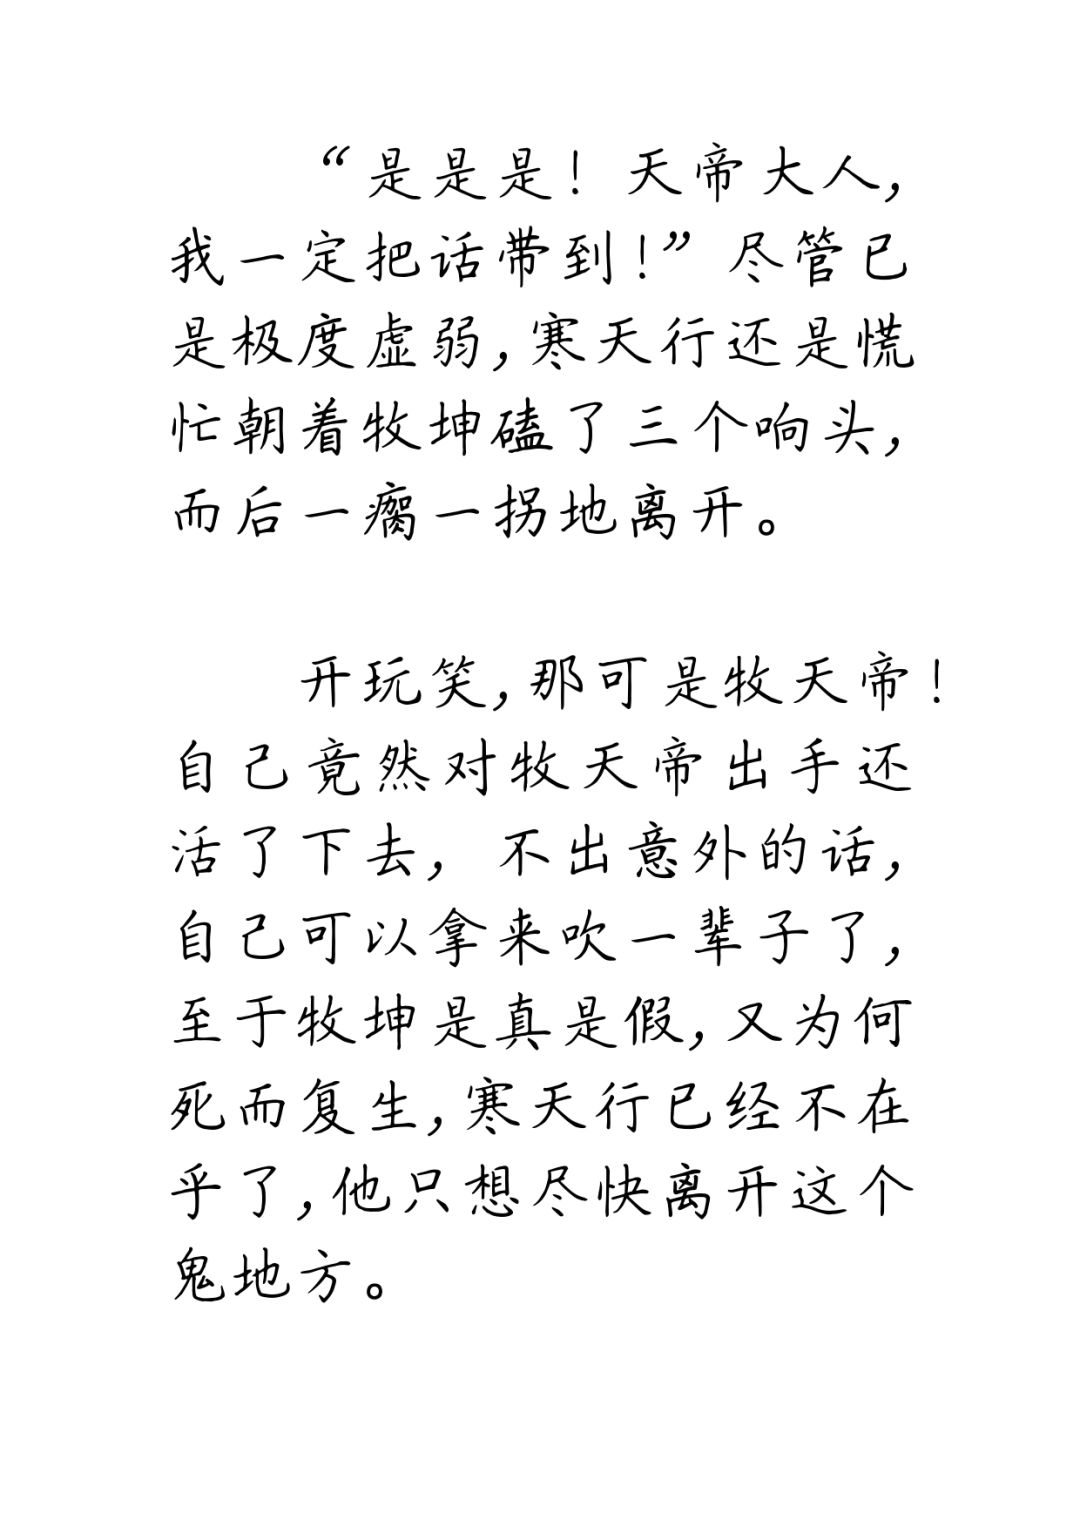 “是是是！天帝大人，
我一定把话带到！”尽管已
是极度虚弱，寒天行还是慌
忙朝着牧坤磕了三个响头，
而后一瘸一拐地离开。
开玩笑，那可是牧天帝！
自己竟然对牧天帝出手还
活了下去，不出意外的话，
自己可以拿来吹一辈子了，
至于牧坤是真是假，又为何
死而复生，寒天行已经不在
乎了，他只想尽快离开这个
鬼地方。